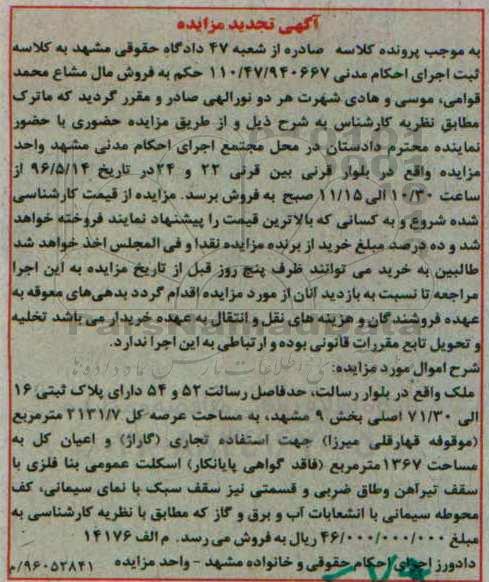 آگهی تجدید مزایده
به موجب پرونده کلاسه صادره از شعبه ۴۷ دادگاه حقوقی مشهد به کلاسه
ثبت اجرای احکام مدنی ۱۱۰/۴۷/۹۴۰۶۶۷ حکم به فروش مال مشاع محمد
قوامی، موسی و هادی شهرت هر دو نورالهی صادر و مقرر گردید که ماترک
مطابق نظریه کارشناس به شرح ذیل و از طریق مزایده حضوری با حضور
نماینده محترم دادستان در محل مجتمع اجرای احکام مدنی مشهد واحد
مزایده واقع در بلوار قرنی بین قرنی ۲۲ و ۲۴در تاریخ ۹۶/۵/۱۴ از
ساعت ۱۰/۳۰ الی ۱۱/۱۵ صبح به فروش برسد. مزایده از قیمت کارشناسی
شده شروع و به کسانی که بالاترین قیمت را پیشنهاد نمایند فروخته خواهد
شد و ده درصد مبلغ خرید از برنده مزایده نقدا و فی المجلس اخذ خواهد شد
طالبین به خرید می توانند ظرف پنج روز قبل از تاریخ مزایده به این اجرا
مراجعه تا نسبت به بازدید آنان از مورد مزایده اقدام گردد بدهی‌های معوقه به
عهده فروشندگان و هزینه های نقل و انتقال به عهده خریدار می باشد تخلیه
و تحویل تابع مقررات قانونی بوده و ارتباطی به این اجرا ندارد.
شرح اموال مورد مزایده:
ملک واقع در بلوار رسالت، حدفاصل رسالت ۵۲ و ۵۴ دارای پلاک ثبتی ۱۶
الی ۷۱/۳۰ اصلی بخش ۹ مشهد، به مساحت عرصه کل ۲۱۳۱/۷ مترمربع
(موقوفه قهارقلی میرزا) جهت استفاده تجاری (گاراژ) و اعیان کل به
مساحت ۱۳۶۷مترمربع (فاقد گواهی پایانکار) اسکلت عمومی بنا فلزی با
سقف تیرآهن وطاق ضربی و قسمتی نیز سقف سبک با نمای سیمانی، کف
محوطه سیمانی با انشعابات آب و برق و گاز که مطابق با نظریه کارشناسی به
مبلغ ۴۶/۰۰۰/۰۰۰/۰۰۰ ریال به فروش می رسد. م الف ۱۴۱۷۶
دادورز اجرای احکام حقوقی و خانواده مشهد - واحد مزایده ۹۶۰۵۳۸۴۱/م
ParsNamadData